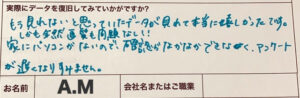 実際にデータを復旧してみていかがですか?
もう見れないと思っていたデータが見れて本当に嬉しかったです。
しかも全然画質も問題なし!!
家にパソコンがないので、確認がなかなかできなく、アンケート
が遅くなりすみません。
お名前 A.M 会社名またはご職業